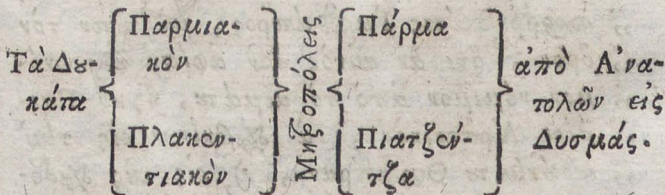 Τὰ Δȣ-
κάτα
Παρμια-
κὸν
Πλακεν-
τιακὸν
Μητροπόλεις
Πάρμα
Πιατζέν-
τζα
ἀπὸ Ἀνα-
τολῶν εἰς
Δυσμάς.